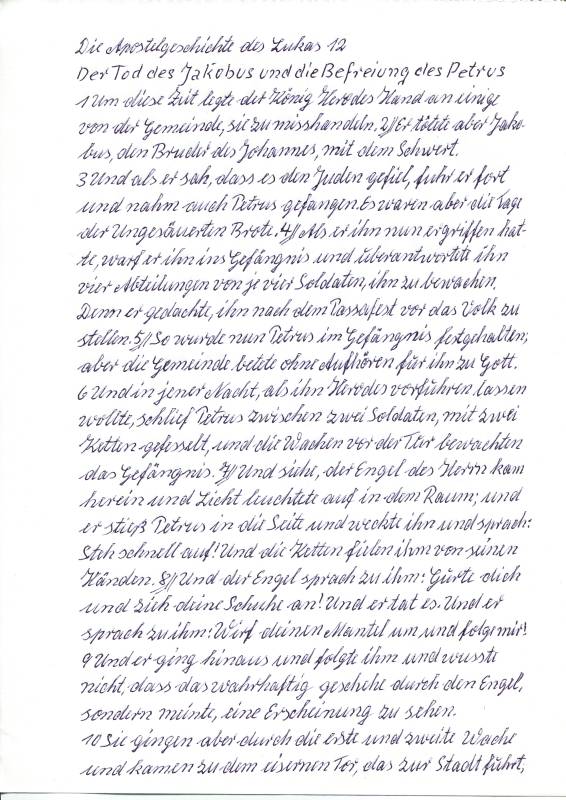 Die Apostelgeschichte des Lukas 12
Der Tod des Jakobus und die Befreiung des Petrus
1 Um diese Zeit legte der König Herodes Hand an einige
von der Gemeinde, sie zu misshandeln. 2// Er tötete aber Jako-
bus, den Bruder des Johannes, mit dem Schwert.
3 Und als er sah, dass es den Juden gefiel, fuhr er fort
und nahm auch Petrus gefangen. Es waren aber die Tage
der Ungesäuerten Brote. 4// Als er ihn nun ergriffen hat-
te, warf er ihn ins Gefängnis und überantwortete ihn
vier Abteilungen von je vier Soldaten, ihn zu bewachen.
Denn er gedachte, ihn nach dem Passafest vor das Volk zu
stellen. 5// So wurde nun Petrus im Gefängnis festgehalten;
aber die Gemeinde betete ohne Aufhören für ihn zu Gott.
6 Und in jener Nacht, als ihn Herodes vorführen lassen
wollte, schlief Petrus zwischen zwei Soldaten, mit zwei
Ketten gefesselt, und die Wachen vor der Tür bewachten
das Gefängnis. 7// Und siehe, der Engel des Herrn kam
herein und Licht leuchtete auf in dem Raum; und
er stieß Petrus in die Seite und weckte ihn und sprach:
Steh schnell auf! Und die Ketten fielen ihm von seinen
Händen. 8// Und der Engel sprach zu ihm: Gürte dich
und zieh deine Schuhe an! Und er tat es. Und er
sprach zu ihm: Wirf deinen Mantel um und folge mir!
9 Und er ging hinaus und folgte ihm und wusste
nicht, dass das wahrhaftig geschehe durch den Engel,
sondern meinte, eine Erscheinung zu sehen.
10 Sie gingen aber durch die erste und zweite Wache
und kamen zu dem eisernen Tor, das zur Stadt führt;